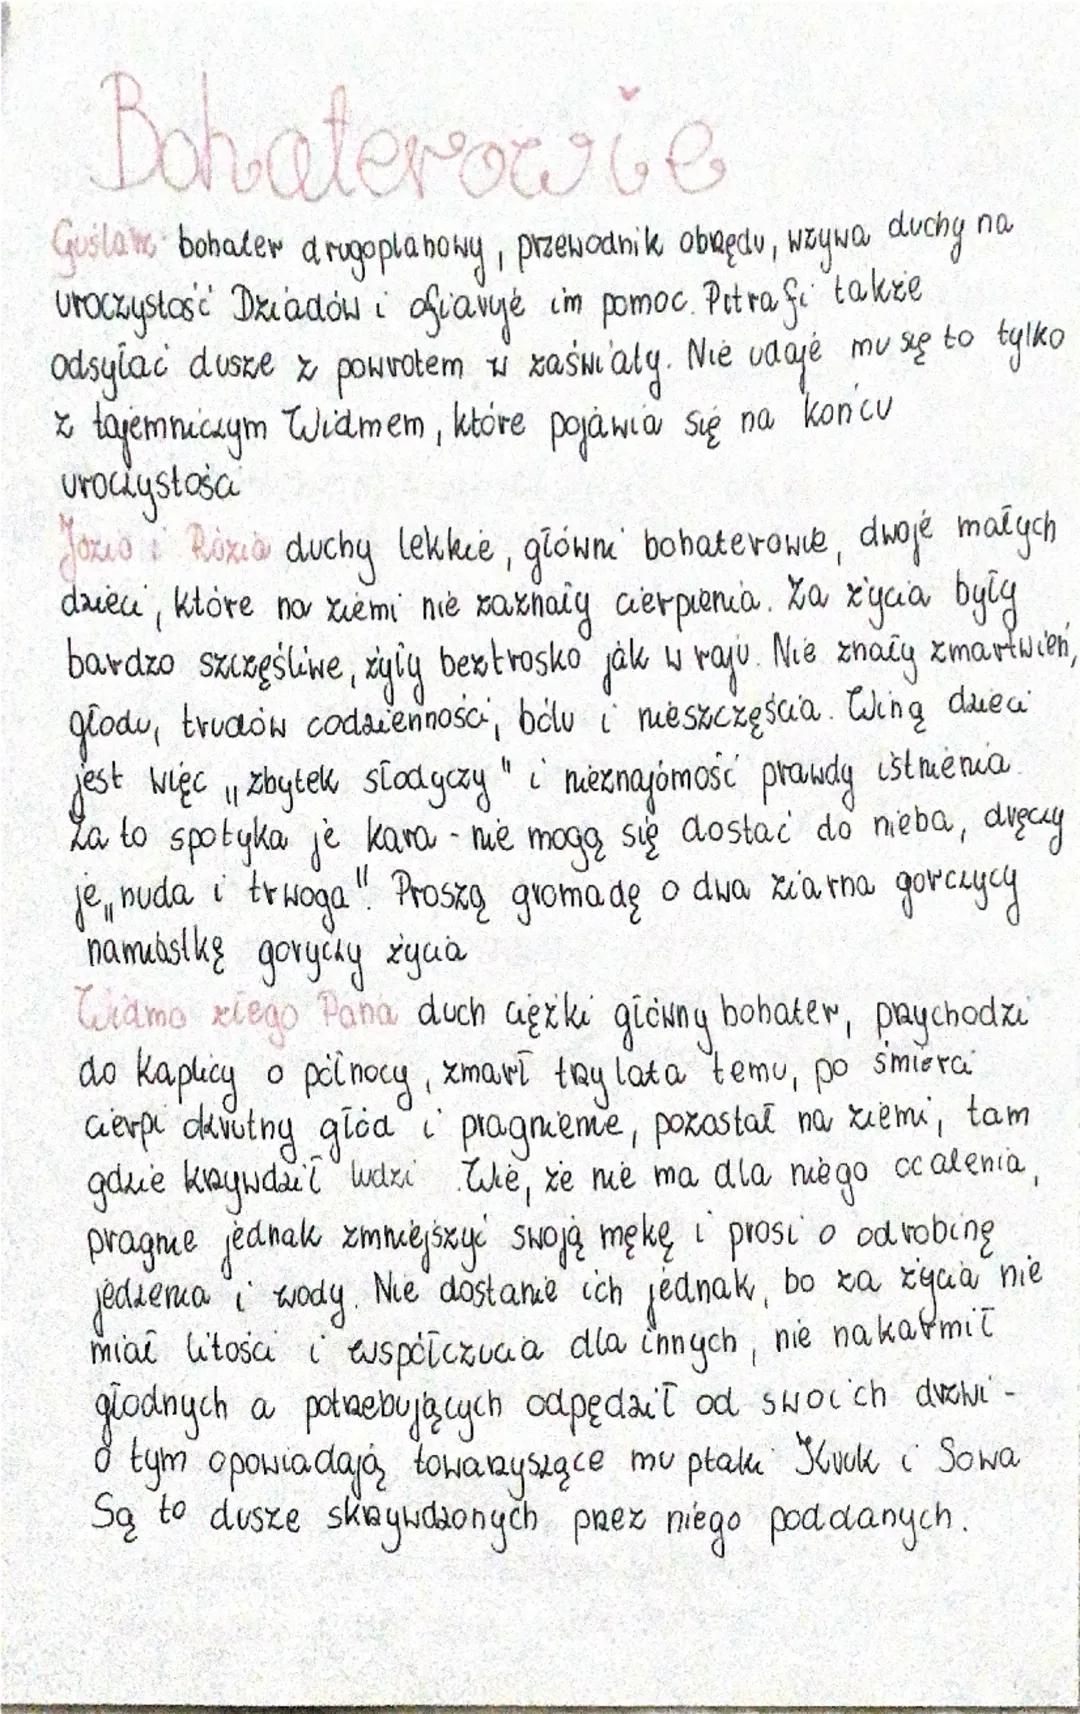 Bohaterowie
Guślarz bohater drugoplanowy, przewodnik obrzędu, wzywa duchy na
uroczystość Dziadów i ofiaruje im pomoc. Potrafi także
odsyłać dusze z powrotem w zaświaty. Nie udaje mu się to tylko
z tajemniczym Widmem, które pojawia się na końcu
uroczystości
Józio i Rózia duchy lekkie, główni bohaterowie, dwoje małych
dzieci, które na ziemi nie zaznały cierpienia. Za życia były
bardzo szczęśliwe, żyły beztrosko jak w raju. Nie znały zmartwień,
głodu, trudów codzienności, bólu i nieszczęścia. Winą dzieci
jest więc „zbytek słodyczy" i nieznajomość prawdy istnienia.
Za to spotyka je kara - nie mogą się dostać do nieba, dręczy
je „nuda i trwoga". Proszą gromadę o dwa ziarna gorczycy
namiastkę goryczy życia
Widmo złego Pana duch ciężki główny bohater, przychodzi
do kaplicy o północy, zmarł trzy lata temu, po śmierci
cierpi okrutny głód i pragnienie, pozostał na ziemi, tam
gdzie krzywdził ludzi. Wie, że nie ma dla niego ocalenia,
pragnie jednak zmniejszyć swoją mękę i prosi o odrobinę
jedzenia i wody. Nie dostanie ich jednak, bo za życia nie
miał litości i współczucia dla innych, nie nakarmił
głodnych a potrzebujących odpędził od swoich drzwi -
o tym opowiadają towarzyszące mu ptaki Kruk i Sowa
Są to dusze skrzywdzonych przez niego poddanych.